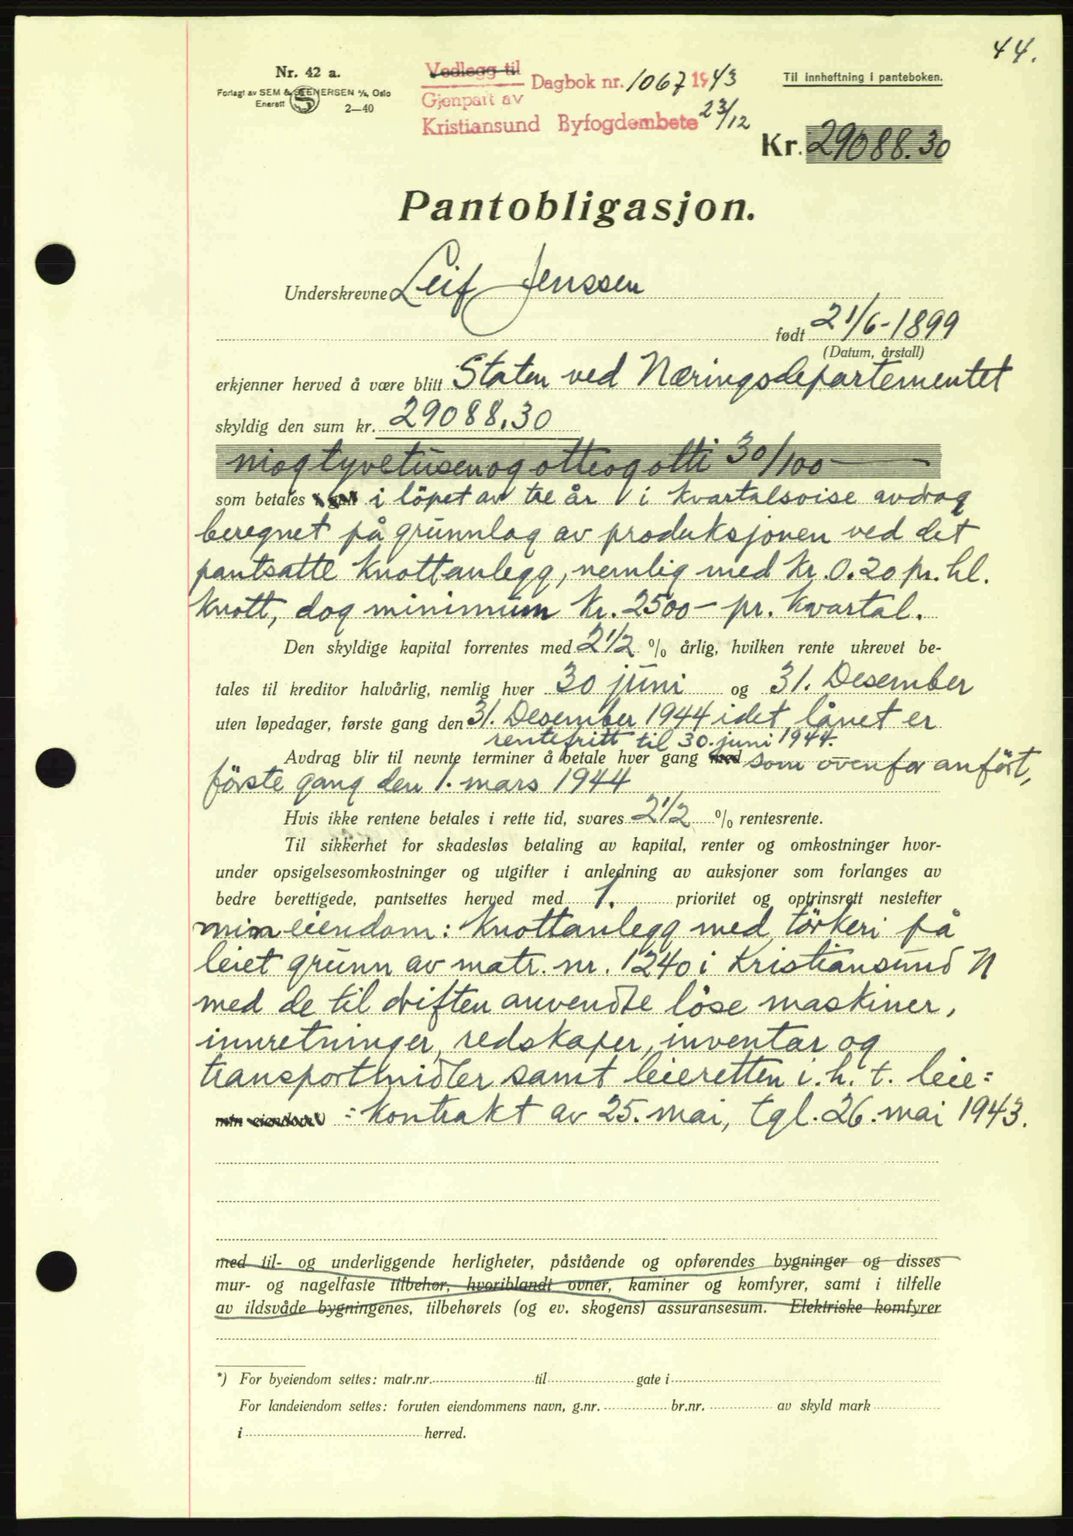 44.
Nr. 42 a.
Forlagt av SEM & STENERSEN A/s, Oslo
Enerett
2—40
Vedlegg til
Gjenpart av
Dagbok nr. 1067 1943
Kristiansund Byfogdembete 23/12
Til innheftning i panteboken.
Kr. 29088.30
Pantobligasjon.
Underskrevne Leif Jenssen
født 21/6-1899
(Datum, årstall)
erkjenner herved å være blitt Staten ved Næringsdepartementet
skyldig den sum kr. 29088.30
niogtyvetusenogotteogotti 30/100
som betales i löpet av tre år i kvartalsvise avdrag
beregnet på grunnlag av produksjonen ved det
pantsatte knottanlegg, nemlig med kr. 0.20 pr. hl.
knott, dog minimum kr. 2500- pr. kvartal.
Den skyldige kapital forrentes med 2 1/2 % årlig, hvilken rente ukrevet be-
tales til kreditor halvårlig, nemlig hver 30 juni og 31. Desember
uten løpedager, første gang den 31. Desember 1944 idet lånet er
rentefritt til 30. juni 1944.
Avdrag blir til nevnte terminer å betale hver gang med som ovenfor anfört,
förste gang den 1. mars 1944
Hvis ikke rentene betales i rette tid, svares 2 1/2 % rentesrente.
Til sikkerhet for skadesløs betaling av kapital, renter og omkostninger hvor-
under opsigelsesomkostninger og utgifter i anledning av auksjoner som forlanges av
bedre berettigede, pantsettes herved med 1. prioritet og optrinsrett nestefter
min eiendom: Knottanlegg med törkeri på
leiet grunn av matr. nr. 1240 i Kristiansund N
med de til driften anvendte löse maskiner,
innretninger, redskaper, inventar og
transportmidler samt leieretten i. h. t. leie=
min eiendom =kontrakt av 25. mai, tgl. 26. mai 1943.
med til- og underliggende herligheter, påstående og opførendes bygninger og disses
mur- og nagelfaste tilbehør, hvoriblandt ovner, kaminer og komfyrer, samt i tilfelle
av ildsvåde bygningenes, tilbehørets (og ev. skogens) assuransesum. Elektriske komfyrer
*) For byeiendom settes: matr.nr. til gate i
For landeiendom settes: foruten eiendommens navn, g.nr. br.nr. av skyld mark
i herred.